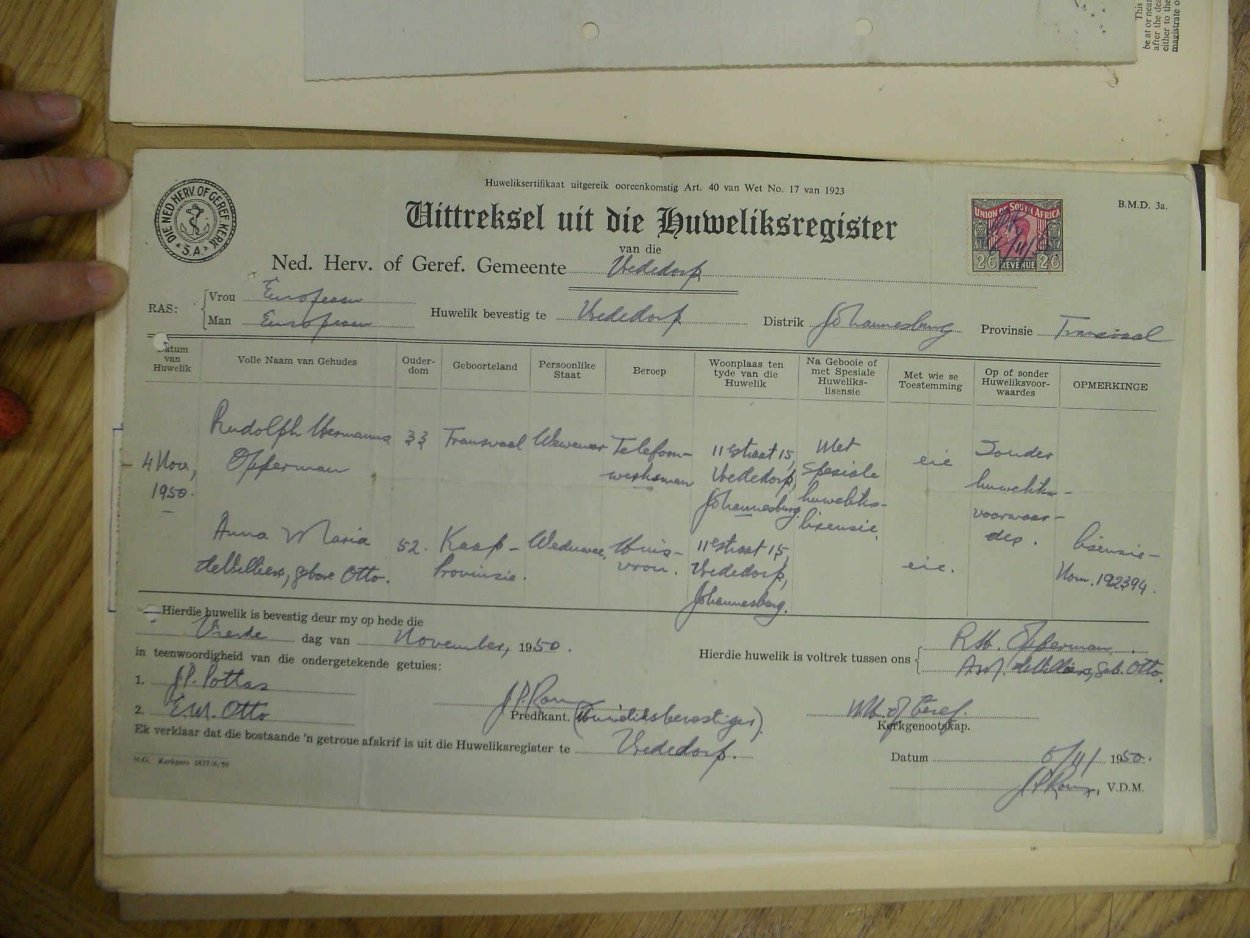 This
be at or near
after the dea
either to the
magistrate o
Huweliksertifikaat uitgereik ooreenkomstig Art. 40 van Wet No. 17 van 1923
B.M.D. 3a.
DIE NED HERV. OF GEREF. KERK S.A.
Uittreksel uit die Huweliksregister
UNION OF SOUTH AFRICA
2/6 REVENUE 2/6
van die
Ned. Herv. of Geref. Gemeente Vrededorp
RAS: Vrou European
Man European
Huwelik bevestig te Vrededorp Distrik Johannesburg Provinsie Transvaal
Datum van Huwelik
Volle Naam van Gehudes
Ouderdom
Geboorteland
Persoonlike Staat
Beroep
Woonplaas ten tyde van die Huwelik
Na Gebooie of met Spesiale Huwelikslisensie
Met wie se Toestemming
Op of sonder Huweliksvoorwaardes
OPMERKINGE
4 Nov, 1950.
Rudolph Hermanus Opperman
33
Transvaal
Wewenaar
Telefoonwerksman
11e straat 15, Vrededorp, Johannesburg
Met spesiale huwelikslisensie.
eie
Sonder huweliksvoorwaardes.
Anna Maria deVilliers, gebore Otto.
52.
Kaap-Provinsie.
Weduwee
Huisvrou.
11e straat 15, Vrededorp, Johannesburg.
eie.
lisensie-Nom. 192394.
Hierdie huwelik is bevestig deur my op hede die
Vierde dag van November, 1950.
in teenwoordigheid van die ondergetekende getuies:
1. J.P. Pottas
2. E.M. Otto
Hierdie huwelik is voltrek tussen ons
R.H. Opperman.
A.M. deVilliers, geb. Otto.
Predikant. (Huweliksbevestiger).
Ned. Herv. of Geref.
Kerkgenootskap.
Ek verklaar dat die bostaande 'n getroue afskrif is uit die Huweliksregister te Vrededorp.
Datum 6/11/ 1950.
V.D.M.
N.G. Kerkpers 1837/6/50